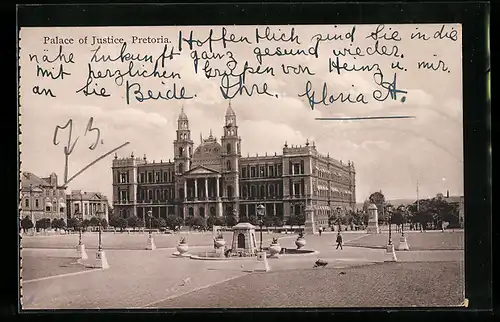 Palace of Justice, Pretoria.
Hoffentlich sind Sie in die
nähe Zukunft ganz gesund wieder.
Mit herzlichen Grüßen von Heinz u. mir.
an Sie Beide. Ihre. Gloria A.